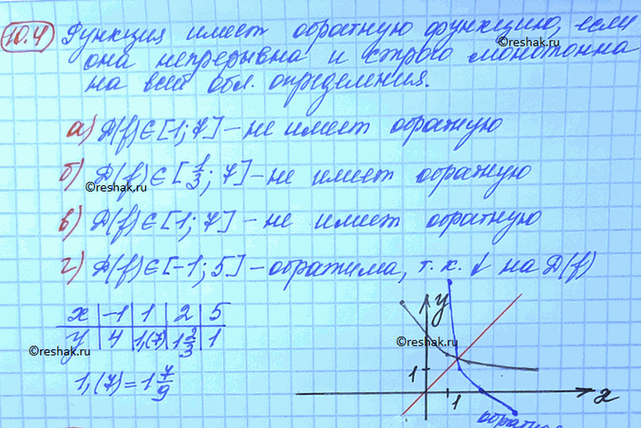 10.4) Функция имеет обратную функцию, если
она непрерывна и строго монотонна
на всей обл. определения.
©reshak.ru
а) D(f)∈[1;7] – не имеет обратную
б) D(f)∈[1/3; 7] – не имеет обратную
©reshak.ru
в) D(f)∈[1;7] – не имеет обратную
г) D(f)∈[-1;5] – обратима, т. к. ↓ на D(f)
x | -1 | 1 | 2 | 5
y | 4 | 1,(7) | 1 2/3 | 1
©reshak.ru
©reshak.ru
1,(7) = 1 7/9
y
1
1
x